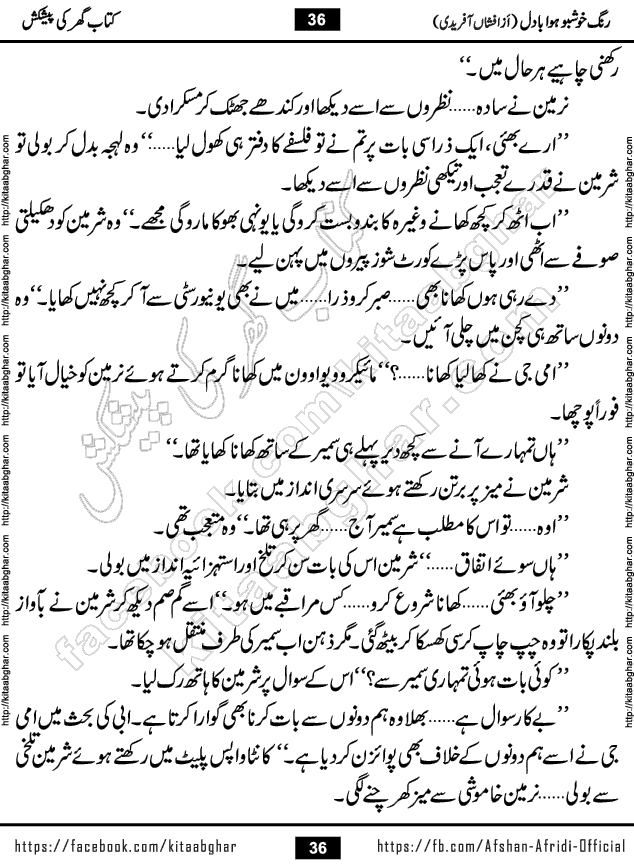 رنگ خوشبو ہوا بادل (از افشاں آفریدی)
36
کتاب گھر کی پیشکش
رکھنی چاہیے ہر حال میں۔‘‘
نرمین نے سادہ......نظروں سے اسے دیکھا اور کندھے جھٹک کر مسکرا دی۔
’’ارے بھئی، ایک ذرا سی بات پر تم نے تو فلسفے کا دفتر ہی کھول لیا......‘‘ وہ لہجہ بدل کر بولی تو
شرمین نے قدرے تعجب اور تیکھی نظروں سے اسے دیکھا۔
’’اب اٹھ کر کچھ کھانے وغیرہ کا بندوبست کرو گی یا یونہی بھوکا مارو گی مجھے۔‘‘ وہ شرمین کو دھکیلتی
صوفے سے اٹھی اور پاس پڑے کورٹ شوز پیروں میں پہن لیے۔
’’دے رہی ہوں کھانا بھی......صبر کرو ذرا......میں نے بھی یونیورسٹی سے آ کر کچھ نہیں کھایا۔‘‘ وہ
دونوں ساتھ ہی کچن میں چلی آئیں۔
’’امی جی نے کھا لیا کھانا......؟‘‘ مائیکرو ویو اوون میں کھانا گرم کرتے ہوئے نرمین کو خیال آیا تو
فوراً پوچھا۔
’’ہاں تمہارے آنے سے کچھ دیر پہلے ہی سمیر کے ساتھ کھانا کھایا تھا۔‘‘
شرمین نے میز پر برتن رکھتے ہوئے سرسری انداز میں بتایا۔
’’اوہ......تو اس کا مطلب ہے سمیر آج......گھر پر ہی تھا۔‘‘ وہ متعجب تھی۔
’’ہاں سوئے اتفاق......‘‘ شرمین اس کی بات سن کر تلخ اور استہزائیہ انداز میں بولی۔
’’چلو آؤ بھئی......کھانا شروع کرو......کس مراقبے میں ہو۔‘‘ اسے گم صم دیکھ کر شرمین نے بآواز
بلند پکارا تو وہ چپ چاپ کرسی کھسکا کر بیٹھ گئی۔ مگر ذہن اب سمیر کی طرف منتقل ہو چکا تھا۔
’’کوئی بات ہوئی تمہاری سمیر سے؟‘‘ اس کے سوال پر شرمین کا ہاتھ رک لیا۔
’’بے کار سوال ہے......بھلا وہ ہم دونوں سے بات کرنا بھی گوارا کرتا ہے۔ ابی کی بحث میں امی
جی نے اسے ہم دونوں کے خلاف بھی پوائزن کر دیا ہے۔‘‘ کانٹا واپس پلیٹ میں رکھتے ہوئے شرمین تلخی
سے بولی......نرمین خاموشی سے میز کھرچنے لگی۔
کتاب گھر کی پیشکش
facebook.com/kitaabghar
kitaabghar.com
http://kitaabghar.com http://kitaabghar.com http://kitaabghar.com http://kitaabghar.com http://kitaabghar.com http://kitaabghar.com
http://kitaabghar.com http://kitaabghar.com http://kitaabghar.com http://kitaabghar.com http://kitaabghar.com http://kitaabghar.com
https://facebook.com/kitaabghar
36
https://fb.com/Afshan-Afridi-Official